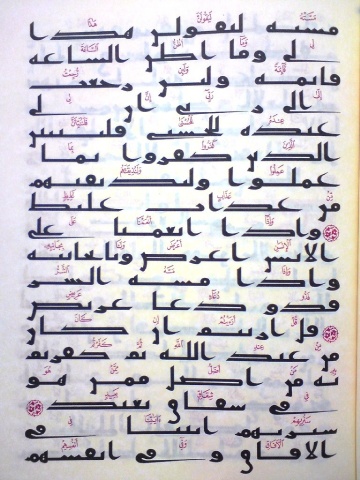 مسته ليقولن هذا
لي وما اظن الساعه
قايمه ولين رجعت
الى ربي ان لي
عنده للحسنى فلننبين
الذين كفروا بما
عملوا ولنذيقنهم
من عذاب غليظ
واذا انعمنا على
الانسن اعرض ونا بجانبه
واذا مسه الشر
فذو دعا عريض
قل اريتم ان كان
من عند الله ثم كفرتم
به من اضل ممن هو
في شقاق بعيد
سنريهم ايتنا في
الافاق وفي انفسهم